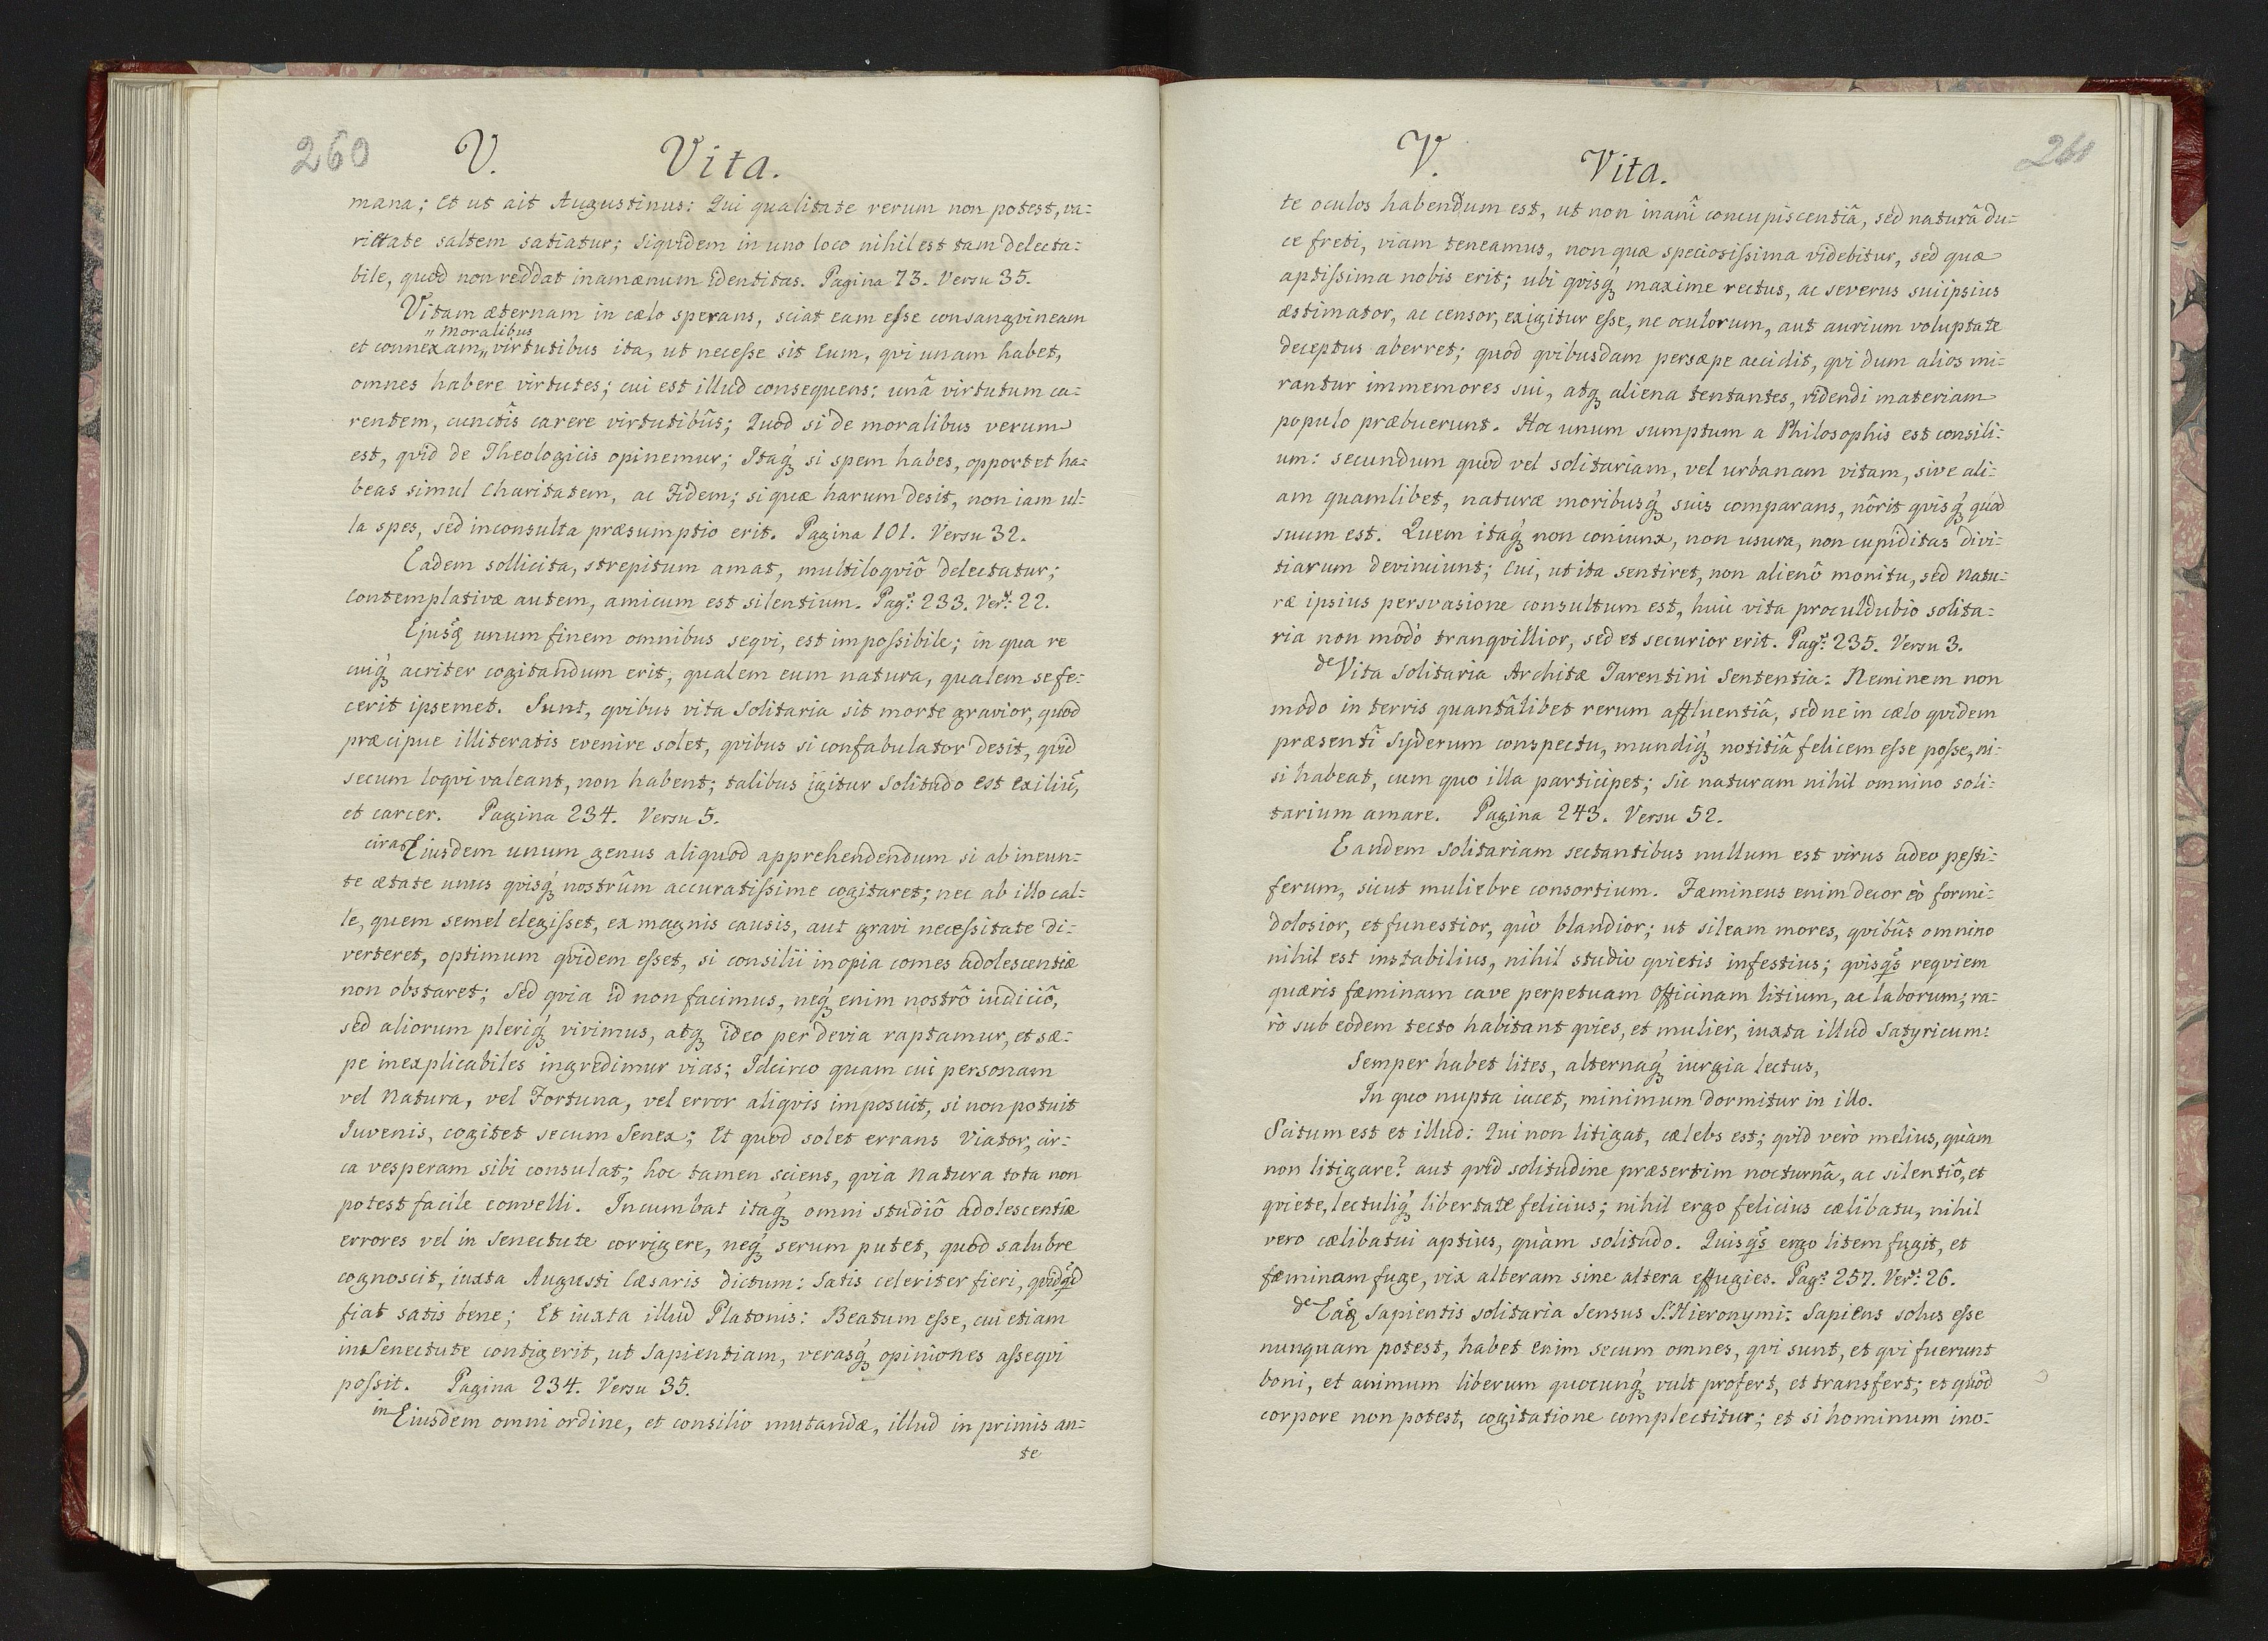 260 V. Vita.
mana; Et ut ait Augustinus: Qui qualitate rerum non potest, va:
rietate saltem satiatur; siqvidem in uno loco nihil est tam delecta:
bile, quod non reddat inamænum identitas. Pagina 73. Versu 35.
Vitam æternam in cælo sperans, sciat eam esse consangvineam
„moralibus
et connexam„ virtutibus ita, ut necesse sit Eum, qvi unam habet,
omnes habere virtutes; cui est illud consequens: unâ virtutum ca:
rentem, cunctîs carere virtutibûs; Quod si de moralibus verum
est, qvid de Theologicis opinemur; Itaq́ꝫ si spem habes, opportet ha:
beas simul Charitatem, ac Fidem; si quæ harum desit, non iam ul:
la spes, sed inconsulta præsumptio erit. Pagina 101. Versu 32.
Eadem sollicita, strepitum amat, multiloqviô delectatur;
Contemplativæ autem, amicum est silentium. Pag: 233. Ver: 22.
Ejusq̃ unum finem omnibus seqvi, est impossibile; in qua re
cuiq́ꝫ acriter cogitandum erit, qualem eum natura, qualem se fe:
cerit ipsemet. Sunt, qvibus vita Solitaria sit morte gravior, quod
præcipue illiteratis evenire solet, qvibus si confabulator desit, qvid
secum loqvi valeant, non habent; talibus igitur Solitudo est exiliũ,
et carcer. Pagina 234. Versu 5.
circa Eiusdem unum genus aliquod apprehendendum si ab ineun:
te ætate unus qvisq́ꝫ nostrûm accuratissime cogitaret; nec ab illo cal:
le, quem semel elegisset, ex magnis causis, aut gravi necessitate di:
verteret, optimum qvidem esset, si consilii inopia comes adolescentiæ
non obstaret; Sed qvia id non facimus, neq́ꝫ enim nostrô iudiciô,
sed aliorum pleriq́ꝫ vivimus, atqꝫ ideo per devia raptamur, et sæ:
pe inexplicabiles ingredimur vias; Idcirco quam cui personam
vel Natura, vel Fortuna, vel error aliqvis imposuit, si non potuit
Iuvenis, cogitet secum Senex; Et quod solet errans Viator, cir:
ca vesperam sibi consulat; hoc tamen sciens, qvia Natura tota non
potest facile convelli. Incumbat itaq́ꝫ omni studiô adolescentiæ
errores vel in Senectute corrigere, neq́ꝫ serum putet, quod salubre
cognoscit, iuxta Augusti Cæsaris dictum: Satis celeriter fieri, qvidq̃d
fiat satis bene; Et iuxta illud Platonis: Beatum esse, cui etiam
in Senectute contigerit, ut Sapientiam, verasq́ꝫ opiniones asseqvi
possit. Pagina 234. Versu 35.
in Eiusdem omni ordine, et consilio mutandæ, illud in primis an:
te
V. Vita. 261
te oculos habendum est, ut non inanî concupiscentiâ, sed naturâ du:
ce freti, viam teneamus, non quæ speciosissima videbitur, sed quæ
aptissima nobis erit; ubi qvisq́ꝫ maxime rectus, ac severus suiipsius
æstimator, ac censor, exigitur esse, ne oculorum, aut aurium voluptate
deceptus aberret; quod qvibusdam persæpe accidit, qvi dum alios mi:
rantur immemores sui, atqꝫ aliena tentantes, ridendi materiam
populo præbuerunt. Hoc unum sumptum a Philosophis est consili:
um: secundum quod vel solitariam, vel urbanam vitam, sive ali:
am quamlibet, naturæ moribusq́ꝫ suis comparans, nôrit qvisq́ꝫ quod
suum est. Quem itaq́ꝫ non coniunx, non usura, non cupiditas divi:
tiarum devinciunt; Cui, ut ita sentiret, non alienô monitu, sed natu:
ræ ipsius persvasione consultum est, huic vita proculdubio solita:
ria non modò tranqvillior, sed et securior erit. Pag: 235. Versu 3.
de Vita Solitaria Architæ Tarentini Sententia: Neminem non
modo in terris quantâlibet rerum affluentiâ, sed ne in cælo qvidem
præsentî Syderum conspectu, mundiq́ꝫ notitiâ felicem esse posse, ni:
si habeat, cum quo illa participet; Sic naturam nihil omnino soli:
tarium amare. Pagina 243. Versu 52.
Eandem Solitariam sectantibus nullum est virus adeo pesti:
ferum, sicut muliebre consortium. Fæmineus enim decor eò formi:
dolosior, et funestior, quò blandior; ut sileam mores, qvibûs omnino
nihil est instabilius, nihil studio qvietis infestius; qvisq̃s reqviem
quæris fæminam cave perpetuam Officinam litium, ac laborum; ra:
rò sub eôdem tecto habitant qvies, et mulier, iuxta illud Satyricum:
Semper habet lites, alternaq́ꝫ iurgia lectus,
In quo nupta iacet, minimum dormitur in illo.
Scitum est et illud: Qui non litigat, cælebs est; qvid verò melius, quàm
non litigare? aut qvid solitudine præsertim nocturnâ, ac silentiô, et
qviete, lectuliq́ꝫ libertate felicius; nihil ergo felicius cælibatu, nihil
vero cælibatui aptius, quàm solitudo. Quisq̃s ergo litem fugit, et
fæminam fuge, vix alteram sine altera effugies. Pag: 257. Ver: 26.
de Eaq̃ Sapientis solitaria Sensus S. Hieronymi: Sapiens solus esse
nunquam potest, habet enim secum omnes, qvi sunt, et qvi fuerunt
boni, et animum liberum quocunq́ꝫ vult profert, et transfert; et quod
corpore non potest, cogitatione complectitur; et si hominum ino: